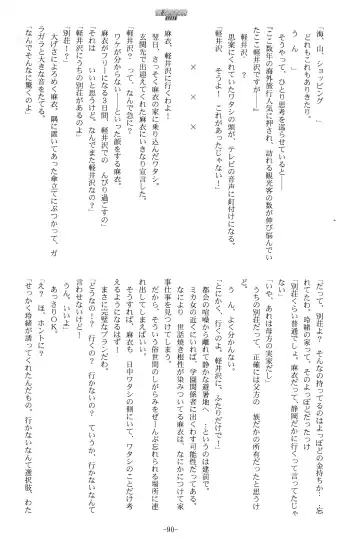 「海、山、ショッピング
どれもこれもありきたり。
そうやって、ひとり思考を巡らせていると――
『ここ数年の海外旅行人気に押され、訪れる観光客の数が伸び悩んでい
た軽井沢ですが――』
思案にくれていたワタシの頭が、テレビの音声に釘付けになる。
「軽井沢 そうよ！ これがあったじゃない！」
× × ×
「麻衣、軽井沢に行くわよ！」
翌日、さっそく麻衣の家に乗り込んだワタシ。
玄関先で出迎えてくれた麻衣にいきなり宣言した。
「軽井沢？ って、なんで急に？」
ワケが分からない――といった顔をする麻衣。
「麻衣がフリーになる3日間、軽井沢でのんびり過ごすの」
「それは いいと思うけど、なんでまた軽井沢なの？」
「軽井沢にうちの別荘があるのよ」
「別荘！？」
大げさによろめく麻衣。隅に置いてあった傘立てにぶつかって、ガ
ラガラと大きな音を立てる。
「なんでそんなに驚くのよ」
「だって、別荘よ？ そんなの持ってるのはよっぽどの金持ちか
忘れてたわ、玲緒の家って、そのよっぽどだったっけ」
「別荘くらい普通でしょ。麻衣だって、静岡だかに行くって言ってたじゃ
ない」
「いや、あれは母方の実家だし」
うちの別荘だって、正確には父方の 族だかの所有だったと思うけ
ど う～ん、よく分かんない。
「とにかく、行くのよ。軽井沢に、ふたりだけで！」
都会の喧噪から離れて静かな避暑地へ ――というのは建前で。
ミカ女の近くにいれば、学園関係者に出くわす可能性だってある。
なにより 世話焼き根性が染みついてる麻衣は、なにかにつけて家
事仕事を見つけてしまう。
だから、そういう俗世間のしがらみをぜ～んぶ忘れられる場所に連
れ出してしまえばいい。
そうすれば、麻衣も一日中ワタシの側にいて、ワタシのことだけ考
えるようになるはず！
まさに完璧なプランだわ。
「どうなの！？ 行くの？ 行かないの？ ていうか、行かないなんて
言わせないけど」
「うん、いいよ」
あっさりOK。
「え？ は、ホントに？」
「せっかく玲緒が誘ってくれたんだもの。行かないなんて選択肢、わた
-90-